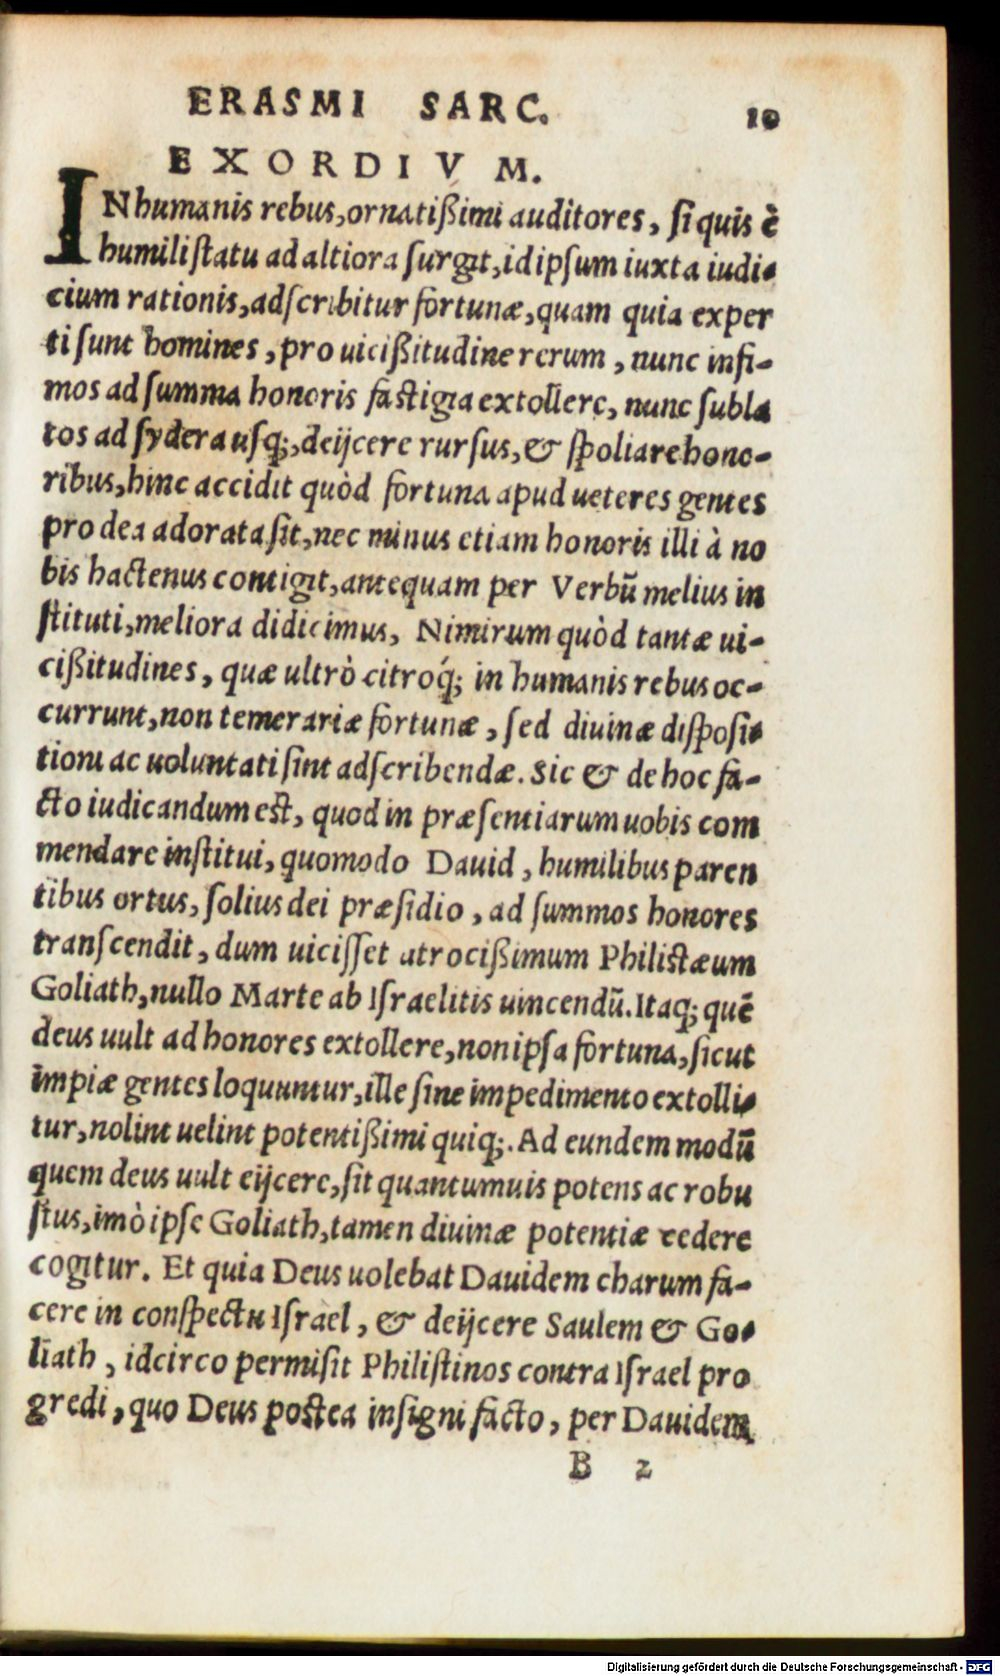 ERASMI SARC. 10
EXORDIVM.
IN humanis rebus, ornatißimi auditores, si quis è
humili statu ad altiora surgit, id ipsum iuxta iudi-
cium rationis, adscribitur fortunæ, quam quia exper
ti sunt homines, pro uicißitudine rerum, nunc infi-
mos ad summa honoris fastigia extollere, nunc subla
tos ad sydera usq;, deijcere rursus, & spoliare hono-
ribus, hinc accidit quòd fortuna apud ueteres gentes
pro dea adorata sit, nec minus etiam honoris illi à no
bis hactenus contigit, antequam per Verbū melius in
stituti, meliora didicimus, Nimirum quòd tantæ ui-
cißitudines, quæ ultrò citroq́; in humanis rebus oc-
currunt, non temerariæ fortunæ, sed diuinæ disposi-
tioni ac uoluntati sint adscribendæ. Sic & de hoc fa-
cto iudicandum est, quod in præsentiarum uobis com
mendare institui, quomodo Dauid, humilibus paren
tibus ortus, solius dei præsidio, ad summos honores
transcendit, dum uicisset atrocißimum Philistæum
Goliath, nullo Marte ab Israelitis uincendū. Itaq; quē
deus uult ad honores extollere, non ipsa fortuna, sicut
impiæ gentes loquuntur, ille sine impedimento extolli-
tur, nolint uelint potentißimi quiq;. Ad eundem modū
quem deus uult eijcere, sit quantumuis potens ac robu
stus, imò ipse Goliath, tamen diuinæ potentiæ cedere
cogitur. Et quia Deus uolebat Dauidem charum fa-
cere in conspectu Israel, & deijcere Saulem & Go-
liath, idcirco permisit Philistinos contra Israel pro
gredi, quo Deus postea insigni facto, per Dauidem
B 2
Digitalisierung gefördert durch die Deutsche Forschungsgemeinschaft - DFG